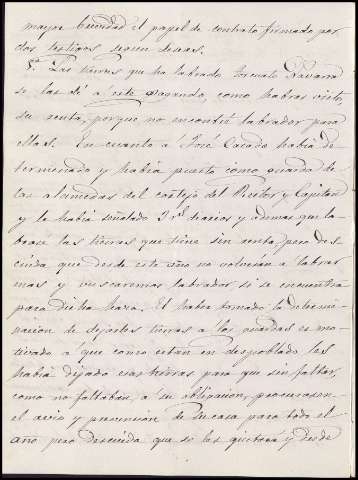 mayor brevedad el papel de contrato firmado por
dos testigos segun deseas.
5º Las tierras que ha labrado Torcuato Navarro
se las dí a este Garando, como habras visto,
su renta, porque no encontré labrador para
ellas. En cuanto a José Casado habia de-
terminado y habia puesto como guarda de
las alamedas del cortejo del Rector y Capitan
y le habia señalado 3 rs diarios y ademas que la-
brase las tierras que tiene sin renta, pero des-
cuida que desde este año no volverán a labrar
mas y buscaremos labrador si se encuentra
para dicha haza. El haber tomado la determi-
nacion de dejarles tierras a los guardas es mo-
tivado a que como están en despoblado les
habia dejado esas tierras para que sin faltar,
como no faltaban a su obligacion, procurasen
el avio y provision de su casa para todo el
año pero descuida que se les quitara y desde